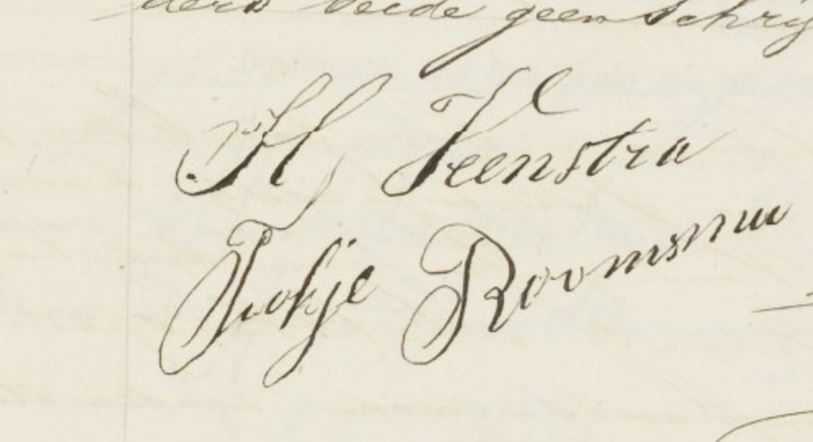 ders beide geen schrij
H Veenstra
Tjokje Roomsma